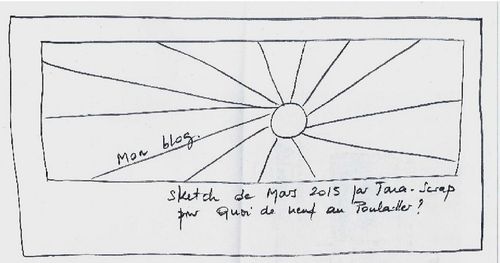 Mon blog.
Sketch de Mars 2015 par Tara-Scrap
pour Quoi de neuf au Poulailler?